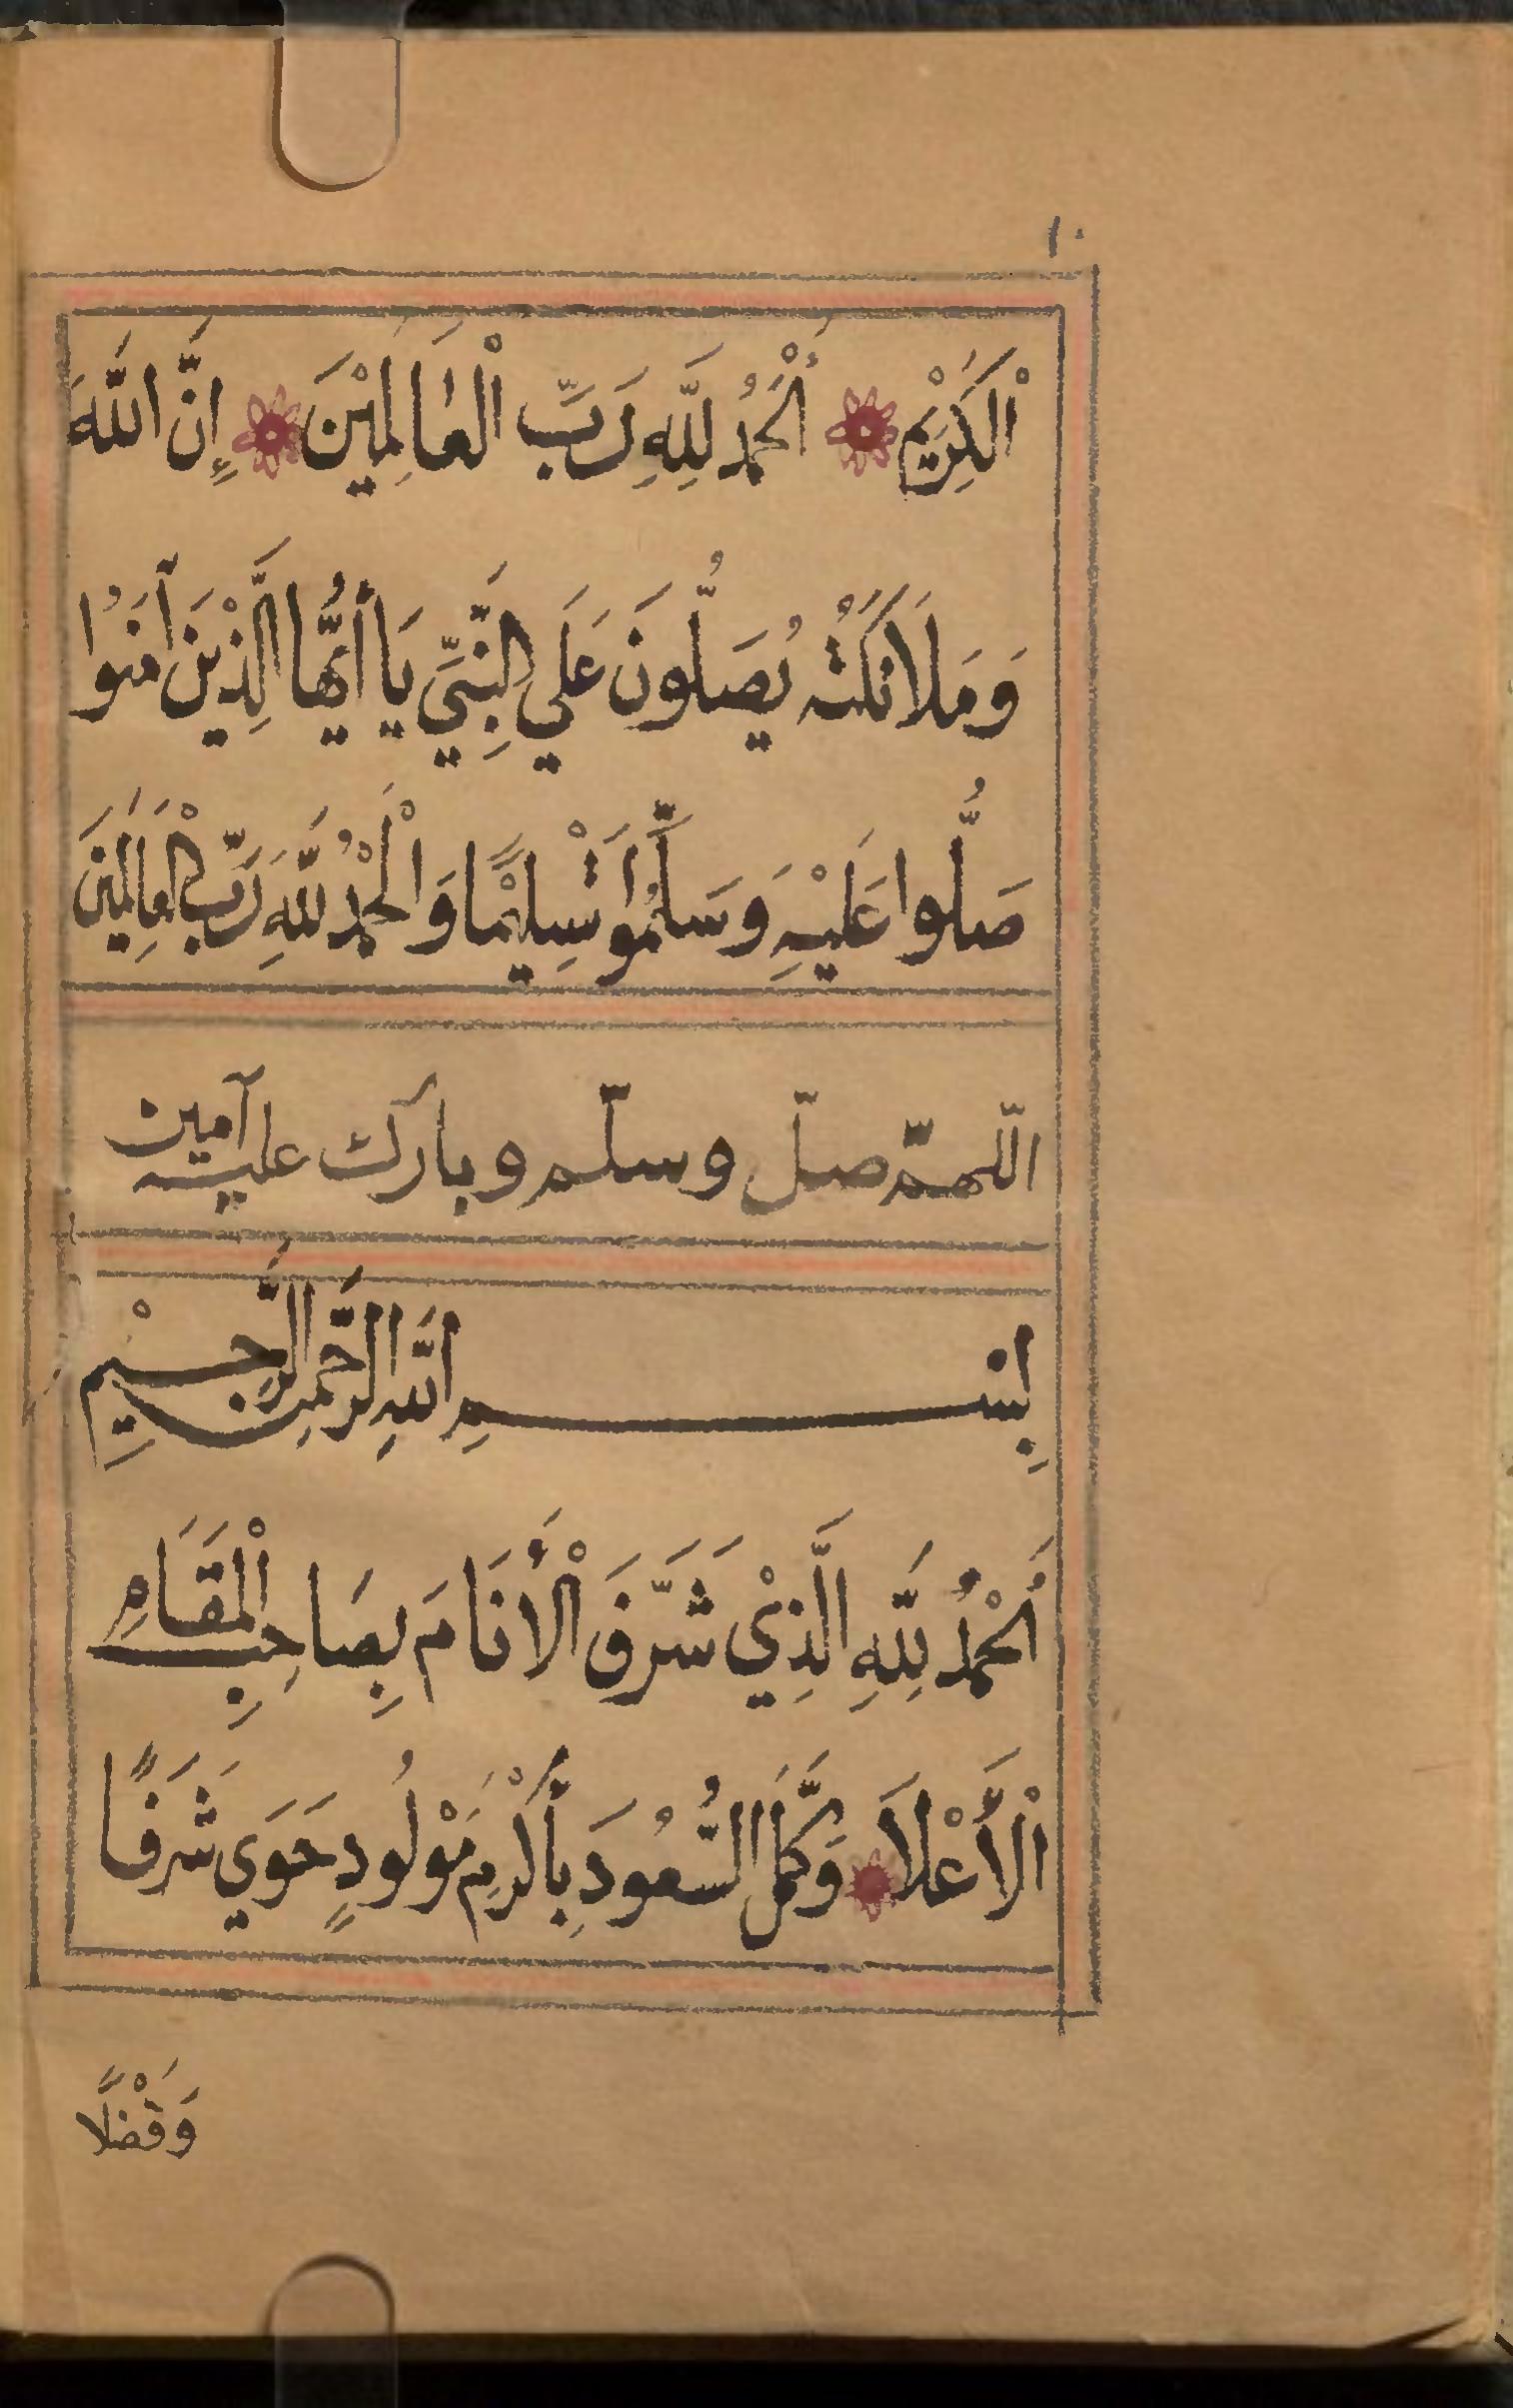 ١٠
الْكَرِيْمِ اَلْحَمْدُ لِلَّهِ رَبِّ الْعَالَمِيْنَ إِنَّ اللَّهَ
وَمَلَائِكَتُه يُصَلُّونَ عَلَي النَّبِيِّ يَا أَيُّهَا الَّذِيْنَ آمَنُوا
صَلُّوا عَلَيْهِ وَسَلِّمُوا تَسْلِيْمًا وَالْحَمْدُ لِلَّهِ رَبِّ الْعَالَمِيْنَ
اللّهمّ صلّ وسلّم وبارك عليه آمين
بِسْمِ اللَّهِ الرَّحْمَنِ الرَّحِيْمِ
اَلْحَمْدُ لِلَّهِ الَّذِيْ شَرَّفَ الْأَنَامَ بِصَاحِبِ الْمَقَامِ
الْأَعْلَا وَكَمَّلَ السُّعُودَ بِأَكْرَمِ مَوْلُودٍ حَوَي شَرَفًا
وَفَضْلًا